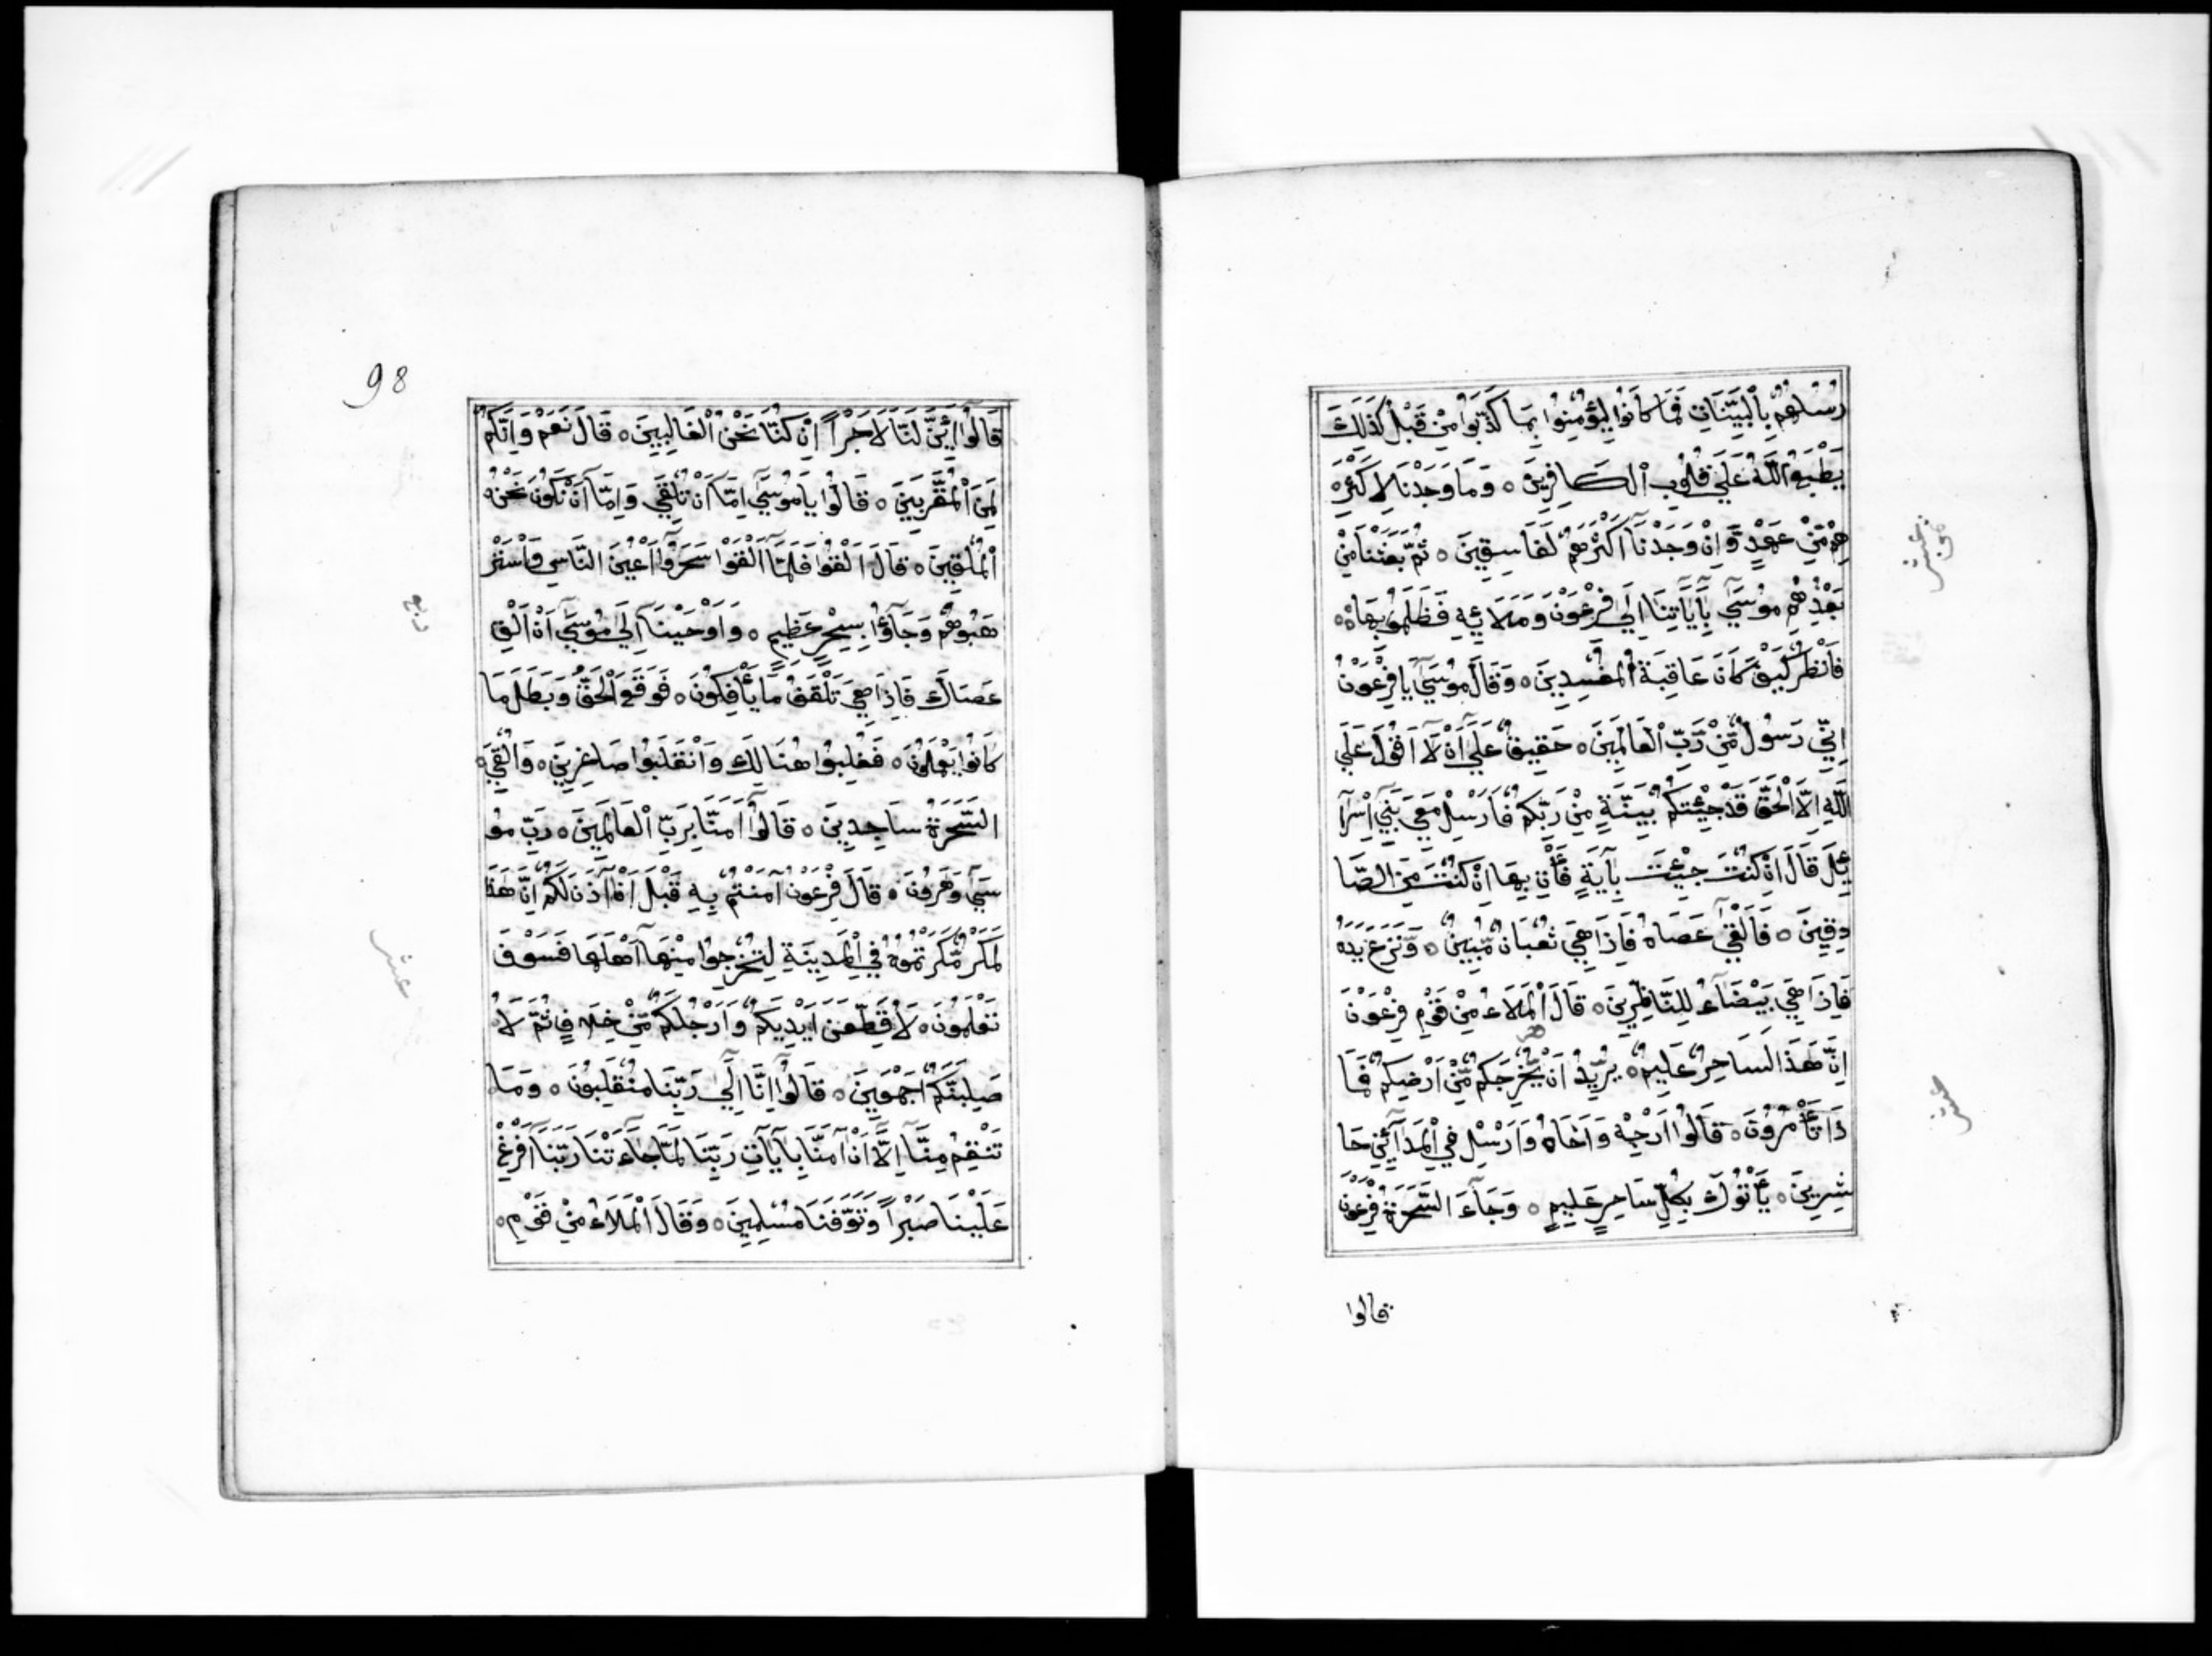 رُسُلُهُمْ بِالْبَيِّنَاتِ فَمَا كَانُوا لِيُؤْمِنُوا بِمَا كَذَّبُوا مِنْ قَبْلُ كَذَلِكَ
يَطْبَعُ اللَّهُ عَلَى قُلُوبِ الْكَافِرِينَ ه وَمَا وَجَدْنَا لِاَكْثَرِ ه
هِمْ مِّنْ عَهْدٍ وَّاِنْ وَجَدْنَآ اَكْثَرَهُمْ لَفَاسِقِينَ ه ثُمَّ بَعَثْنَا مِنْ
بَعْدِهِمْ مُوسَى بِآيَاتِنَآ اِلَى فِرْعَوْنَ وَمَلَائِهِ فَظَلَمُوا بِهَا ه
فَانْظُرْ كَيْفَ كَانَ عَاقِبَةُ الْمُفْسِدِينَ ه وَقَالَ مُوسَى يَا فِرْعَوْنُ
اِنِّي رَسُولٌ مِّنْ رَّبِّ الْعَالَمِينَ ه حَقِيقٌ عَلَى اَنْ لَآ اَقُولَ عَلَى
اللَّهِ اِلَّا الْحَقَّ قَدْ جِئْتُكُمْ بِبَيِّنَةٍ مِنْ رَبِّكُمْ فَاَرْسِلْ مَعِيَ بَنِي اِسْرَآ
ئِلَ قَالَ اِنْ كُنْتَ جِئْتَ بِآيَةٍ فَأْتِ بِهَا اِنْ كُنْتَ مِنَ الصَّا
دِقِينَ ه فَاَلْقَى عَصَاهُ فَاِذَا هِيَ ثُعْبَانٌ مُّبِينٌ ه وَّنَزَعَ يَدَهُ
فَاِذَا هِيَ بَيْضَآءُ لِلنَّاظِرِينَ ه قَالَ الْمَلَاءُ مِنْ قَوْمِ فِرْعَوْنَ
اِنَّ هَذَا لَسَاحِرٌ عَلِيمٌ ه يُرِيدُ اَنْ يُّخْرِجَكُمْ مِّنْ اَرْضِكُمْ فَمَا
ذَا تَأْمُرُونَ ه قَالُوا اَرْجِهْ وَاَخَاهُ وَاَرْسِلْ فِي الْمَدَآئِنِ حَا
شِرِينَ ه يَأْتُوكَ بِكُلِّ سَاحِرٍ عَلِيمٍ ه وَجَآءَ السَّحَرَةُ فِرْعَوْنَ
قالوا
عشر
98
قَالُوآ اَئِنَّ لَنَا لَاَجْرًا اِنْ كُنَّا نَحْنُ الْغَالِبِينَ ه قَالَ نَعَمْ وَاِنَّكُمْ
لَمِنَ الْمُقَرَّبِينَ ه قَالُوا يَا مُوسَى اِمَّآ اَنْ تُلْقِيَ وَاِمَّآ اَنْ نَكُونَ نَحْنُ ه
الْمُلْقِينَ ه قَالَ اَلْقُوا فَلَمَّآ اَلْقَوْا سَحَرُوآ اَعْيُنَ النَّاسِ وَاسْتَرْ
هَبُوهُمْ وَجَآؤُا بِسِحْرٍ عَظِيمٍ ه وَاَوْحَيْنَآ اِلَى مُوسَى اَنْ اَلْقِ
عَصَاكَ فَاِذَا هِيَ تَلْقَفُ مَا يَأْفِكُونَ ه فَوَقَعَ الْحَقُّ وَبَطَلَ مَا
كَانُوا يَعْمَلُونَ ه فَغُلِبُوا هُنَالِكَ وَانْقَلَبُوا صَاغِرِينَ ه وَاُلْقِيَ ه
السَّحَرَةُ سَاجِدِينَ ه قَالُوآ اَمَنَّا بِرَبِّ الْعَالَمِينَ ه رَبِّ مُو
سَى وَهَرُونَ ه قَالَ فِرْعَوْنُ آمَنْتُمْ بِهِ قَبْلَ اَنْ آذَنَ لَكُمْ اِنَّ هَذَا
لَمَكْرٌ مَّكَرْتُمُوهُ فِي الْمَدِينَةِ لِتُخْرِجُوا مِنْهَآ اَهْلَهَا فَسَوْفَ
تَعْلَمُونَ ه لَاُقَطِّعَنَّ اَيْدِيَكُمْ وَاَرْجُلَكُمْ مِّنْ خِلَافٍ ثُمَّ لَاُ
صَلِّبَنَّكُمْ اَجْمَعِينَ ه قَالُوآ اِنَّآ اِلَى رَبِّنَا مُنْقَلِبُونَ ه وَمَا ه
تَنْقِمُ مِنَّآ اِلَّآ اَنْ آمَنَّا بِآيَاتِ رَبِّنَا لَمَّا جَآءَتْنَا رَبَّنَآ اَفْرِغْ
عَلَيْنَا صَبْرًا وَّتَوَفَّنَا مُسْلِمِينَ ه وَقَالَ الْمَلَاءُ مِنْ قَوْمِ ه
عشر